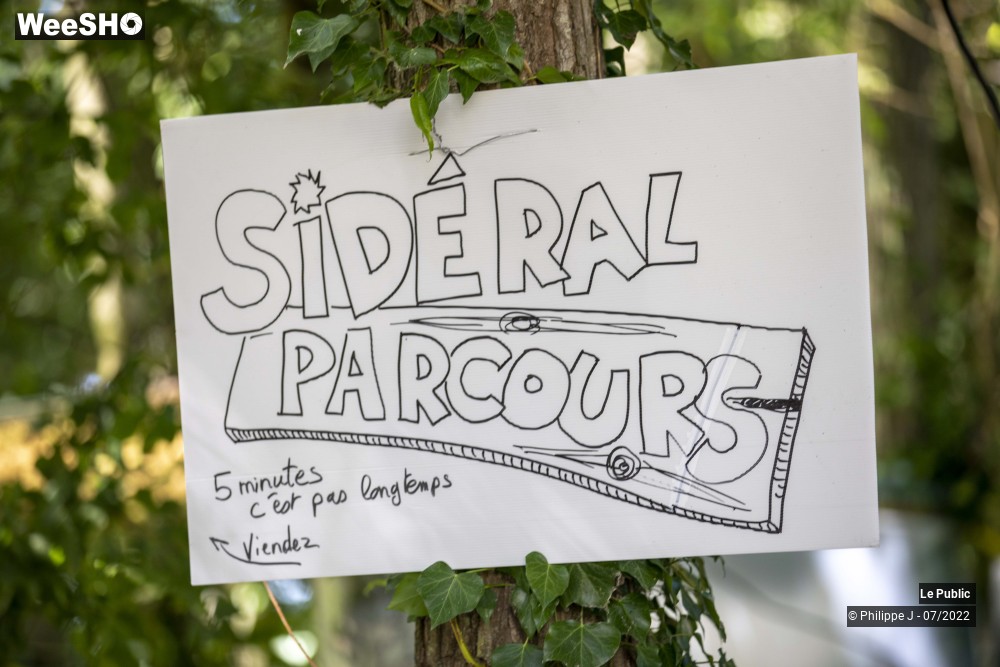 WeeSHO
SiDÉRAL
PARCOURS
5 minutes
c'est pas longtemps
Viendez
Le Public
© Philippe J - 07/2022